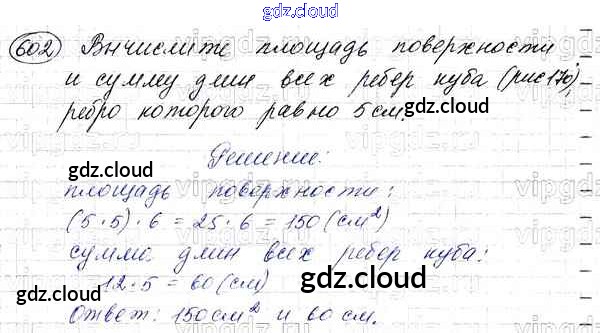 gdz.cloud
602 Вычислите площадь поверхности
и сумму длин всех ребер куба (рис 170),
ребро которого равно 5 см.
gdz.cloud
gdz.cloud
Решение:
площадь поверхности:
(5·5)·6 = 25·6 = 150 (см²)
gdz.cloud
сумма длин всех ребер куба:
12·5 = 60 (см)
gdz.cloud
gdz.cloud
Ответ: 150 см² и 60 см.